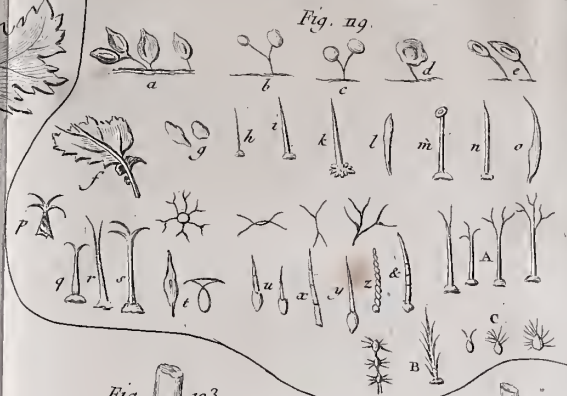 Fig. 119.
a b c d e
f g h i k l m n o
p q r s t u x y z & A
B C
Fig. 103.